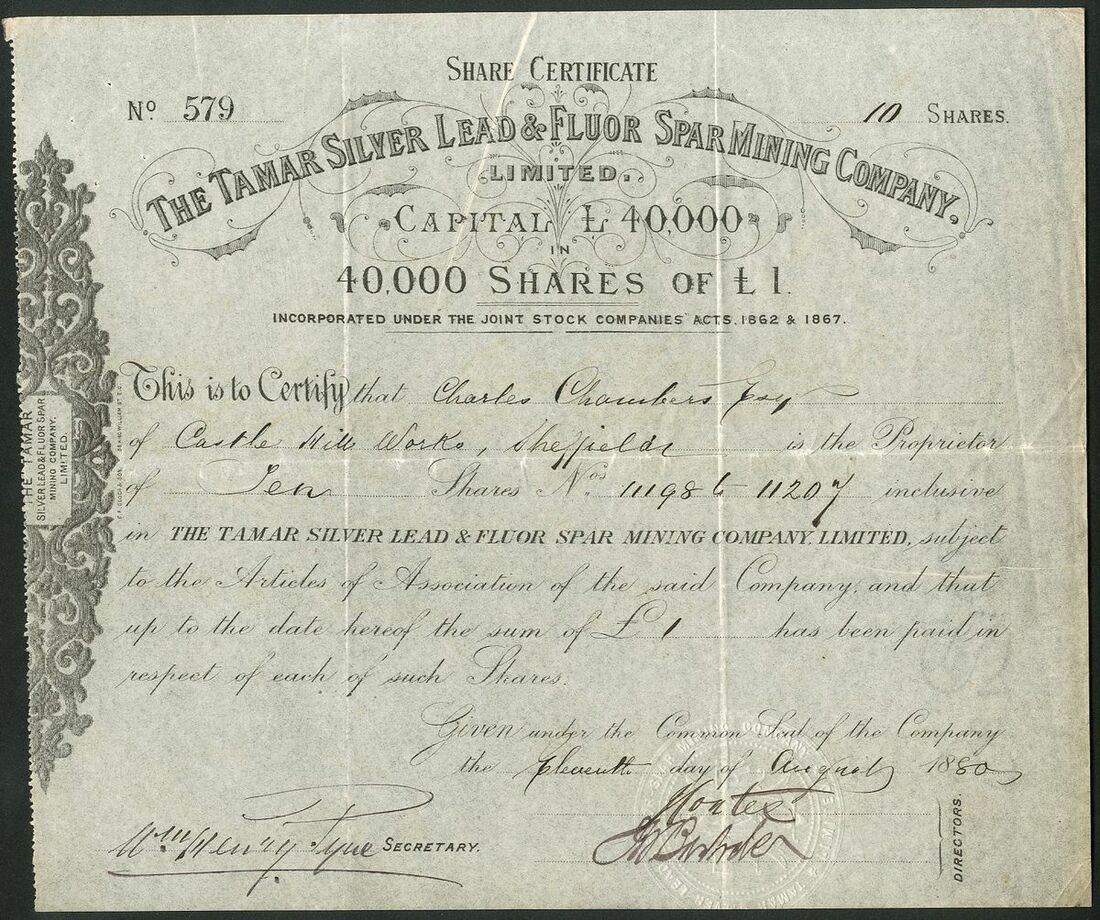 SHARE CERTIFICATE
No 579
10 SHARES.
THE TAMAR SILVER LEAD & FLUOR SPAR MINING COMPANY.
LIMITED.
CAPITAL £ 40,000
IN
40,000 SHARES OF £ 1.
INCORPORATED UNDER THE JOINT STOCK COMPANIES ACTS, 1862 & 1867.
This is to Certify that Charles Chambers Esq
of Castle Mill Works, Sheffield is the Proprietor
of Ten Shares Nos. 11198 to 11207 inclusive
in THE TAMAR SILVER LEAD & FLUOR SPAR MINING COMPANY, LIMITED, subject
to the Articles of Association of the said Company, and that
up to the date hereof the sum of £ 1 has been paid in
respect of each of such Shares.
Given under the Common Seal of the Company
the Eleventh day of August 1880
Wm Henry SECRETARY.
DIRECTORS.
THE TAMAR
SILVER LEAD & FLUOR SPAR
MINING COMPANY,
LIMITED.